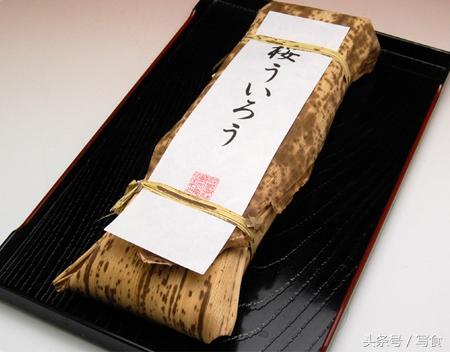 桜ういろう
头条号 / 写食